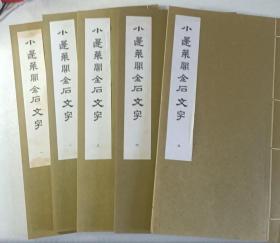 小蓬萊閣金石文字
一
小蓬萊閣金石文字
小蓬萊閣金石文字
三
小蓬萊閣金石文字
四
小蓬萊閣金石文字
五